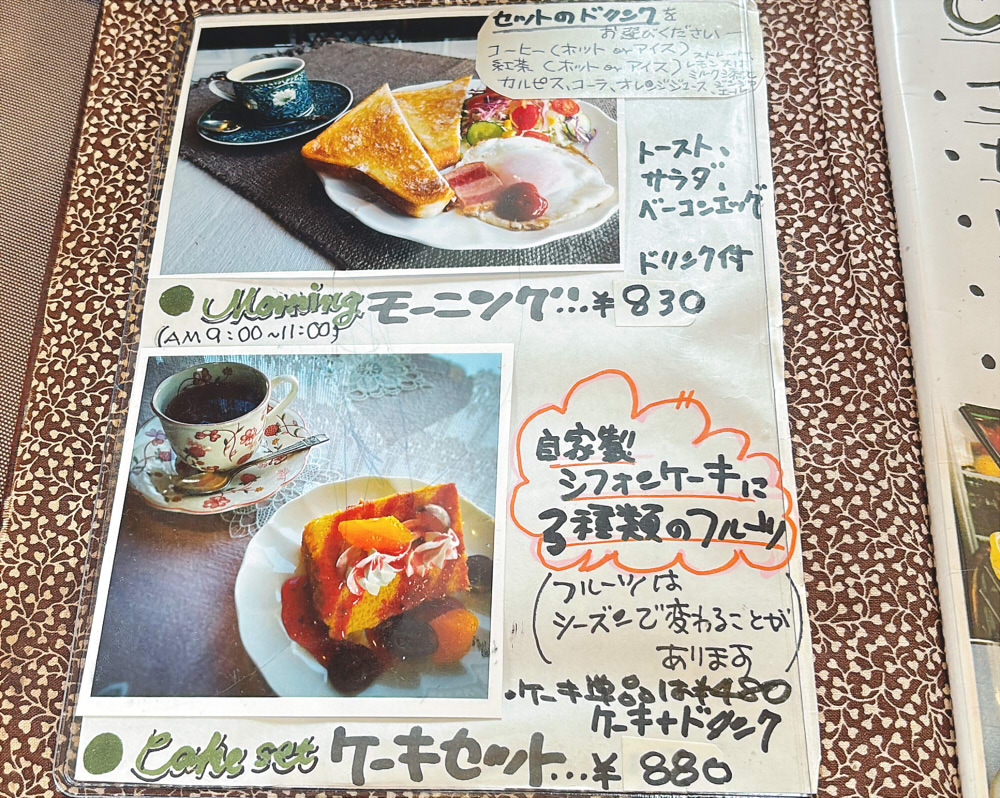 セットのドリンクを
お選びください
コーヒー(ホット or アイス)
紅茶(ホット or アイス)
カルピス、コーラ、オレンジジュース、
トースト、
サラダ、
ベーコンエッグ
ドリンク付
Morning モーニング…¥830
(AM 9:00~11:00)
自家製
シフォンケーキに
3種類のフルーツ
(フルーツは
シーズンで変わることが
あります)
・ケーキ単品は¥480
ケーキ+ドリンク
Cake set ケーキセット…¥880